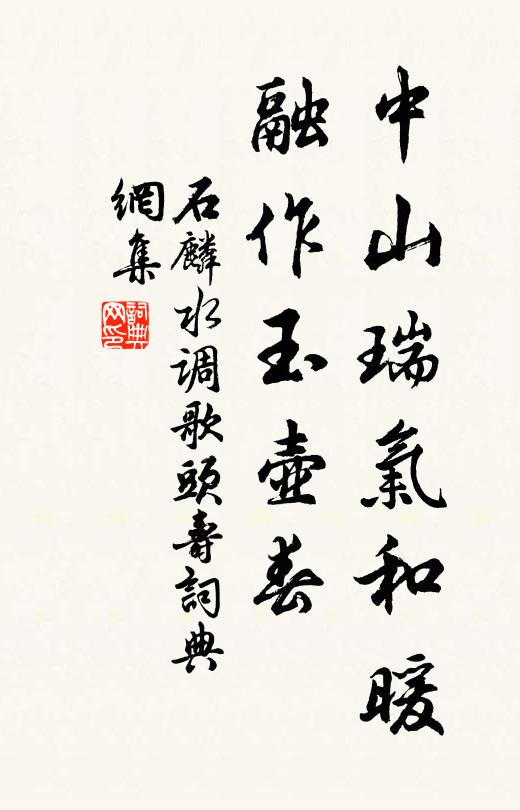 中山瑞氣和暖
融作玉壺春
石麟水调歌頭壽詞典
網集
詞典网印